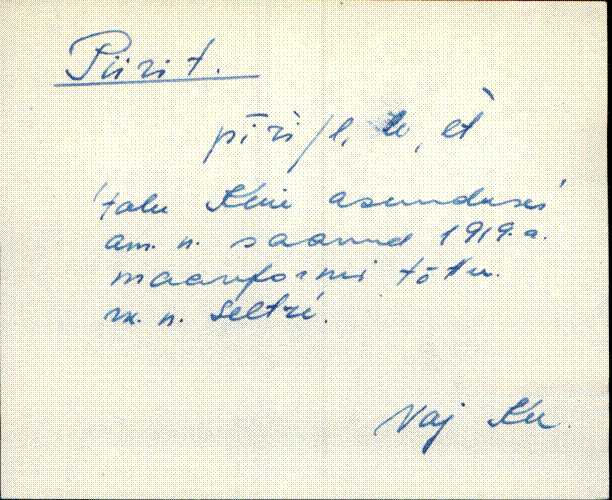 Piirit.
pīri/l, le, èt
'talu Keri asunduses'
am. n. saanud 1919. a.
maareformi tõttu.
rk. n. Seltri.
Vaj Ku.